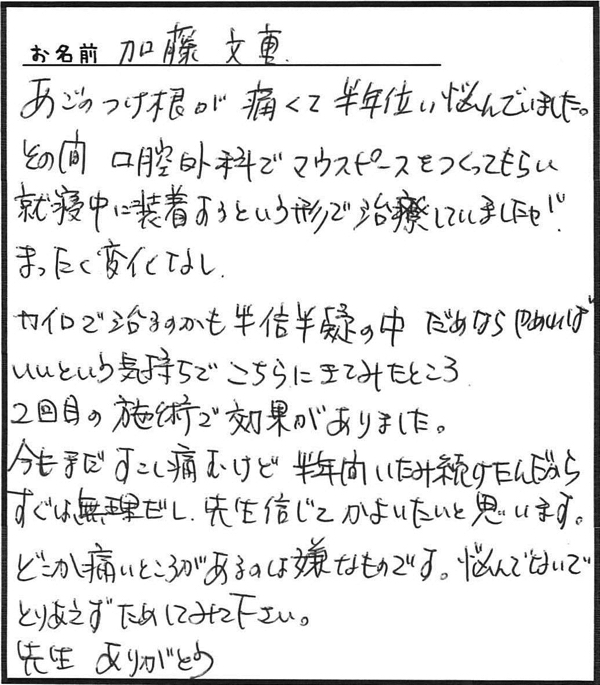 お名前 加藤 文恵
あごのつけ根が 痛くて 半年位い悩んでいました。
その間 口腔外科でマウスピースをつくってもらい
就寝中に装着するという形で治療していましたが
まったく変化なし.
カイロで治るのかも半信半疑の中 だめならやめれば
いいという気持ちでこちらにきてみたところ
2回目の施術で効果がありました。
今もまだすこし痛むけど 半年間いたみ続けたんだから
すぐは無理だし、先生信じてかよいたいと思います。
どこか痛いところがあるのは嫌なものです。悩んでないで
とりあえずためしてみて下さい。
先生 ありがとう